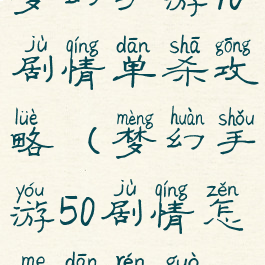 jù qíng dān shā gōng
剧情单杀攻
lüè mèng huàn shǒu
略（梦幻手
yóu jù qíng zěn
游50剧情怎
me dān rén guò